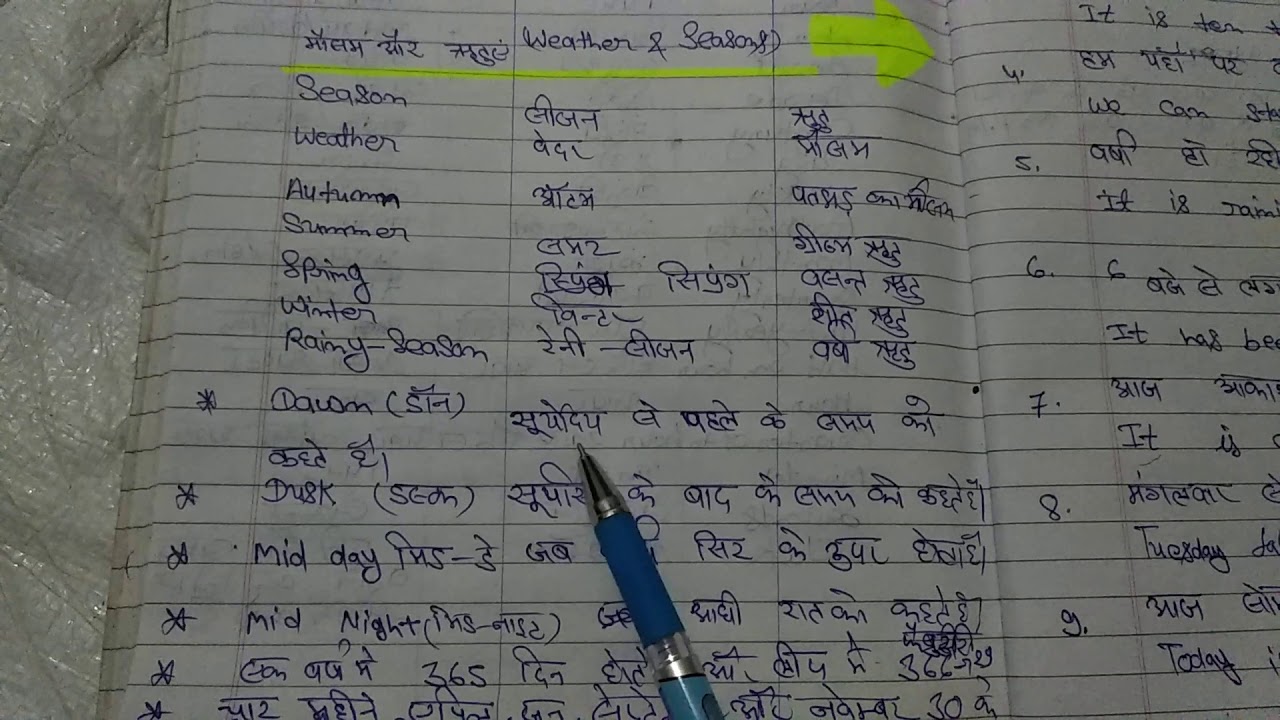 मौसम और ऋतुएं (Weather & Seasons)
Season सीजन ऋतु
Weather वेदर मौसम
Autumn ऑटम पतझड़ का मौसम
Summer समर ग्रीष्म ऋतु
Spring स्प्रिंग वसन्त ऋतु
Winter विन्टर शीत ऋतु
Rainy-Season रेनी-सीजन वर्षा ऋतु
* Dawn (डॉन) सूर्योदय से पहले के समय को
कहते है।
* Dusk (डस्क) के बाद के समय को कहते है।
* Mid day मिड-डे जब सिर के ऊपर होता है।
* Mid Night (मिड-नाइट) आधी रात को कहते है।
* एक वर्ष मे 365 दिन होते लीप मे 366
* चार महीने अप्रैल जून और नवम्बर 30 के
It is ten
4. हम यहाँ पर
We can
5. वर्षा हो रही
It is
6. 6 बजे से
It has
7. आज
It is
8. मंगलवार
Tuesday
9. आज
Today